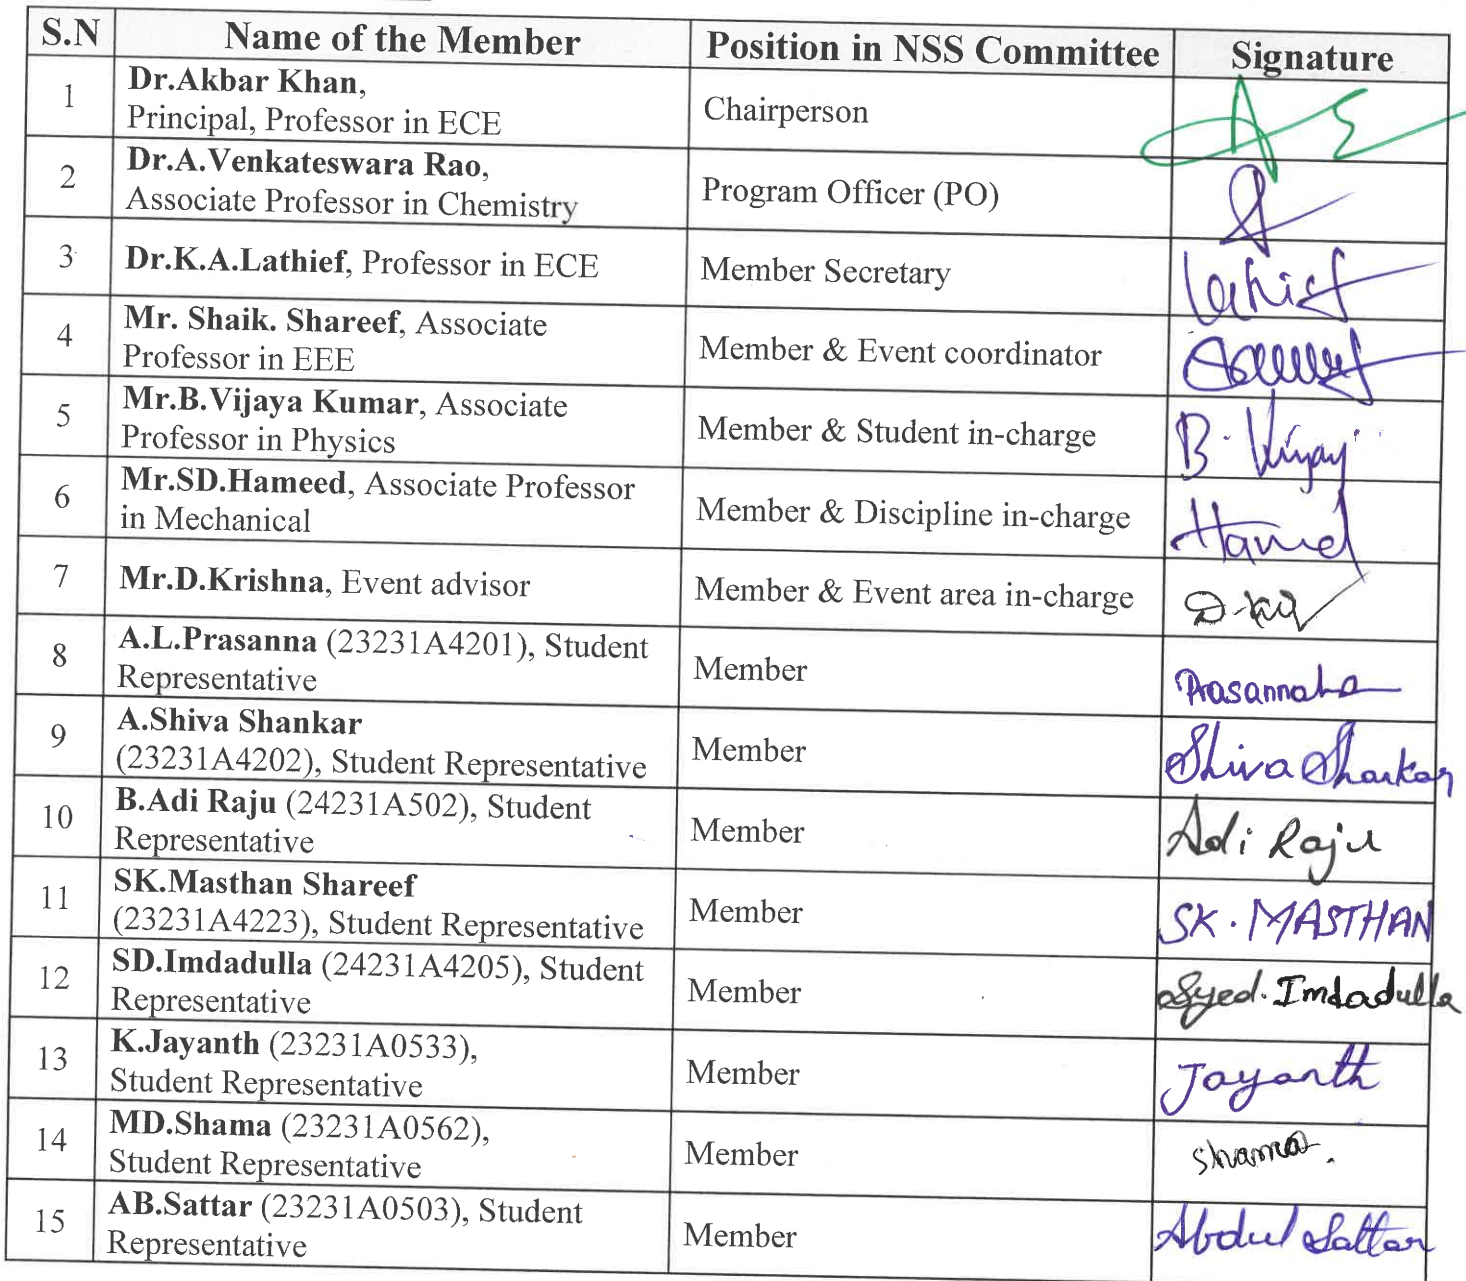 S.N Name of the Member Position in NSS Committee Signature
1 Dr.Akbar Khan,
Principal, Professor in ECE Chairperson
2 Dr.A.Venkateswara Rao,
Associate Professor in Chemistry Program Officer (PO)
3 Dr.K.A.Lathief, Professor in ECE Member Secretary Lathief
4 Mr. Shaik. Shareef, Associate
Professor in EEE Member & Event coordinator
5 Mr.B.Vijaya Kumar, Associate
Professor in Physics Member & Student in-charge B. Vijay
6 Mr.SD.Hameed, Associate Professor
in Mechanical Member & Discipline in-charge Hamed
7 Mr.D.Krishna, Event advisor Member & Event area in-charge
8 A.L.Prasanna (23231A4201), Student
Representative Member
9 A.Shiva Shankar
(23231A4202), Student Representative Member Shiva Shankar
10 B.Adi Raju (24231A502), Student
Representative Member Adi Raju
11 SK.Masthan Shareef
(23231A4223), Student Representative Member SK. MASTHAN
12 SD.Imdadulla (24231A4205), Student
Representative Member Syed. Imdadulla
13 K.Jayanth (23231A0533),
Student Representative Member Jayanth
14 MD.Shama (23231A0562),
Student Representative Member Shama.
15 AB.Sattar (23231A0503), Student
Representative Member Abdul Sattar